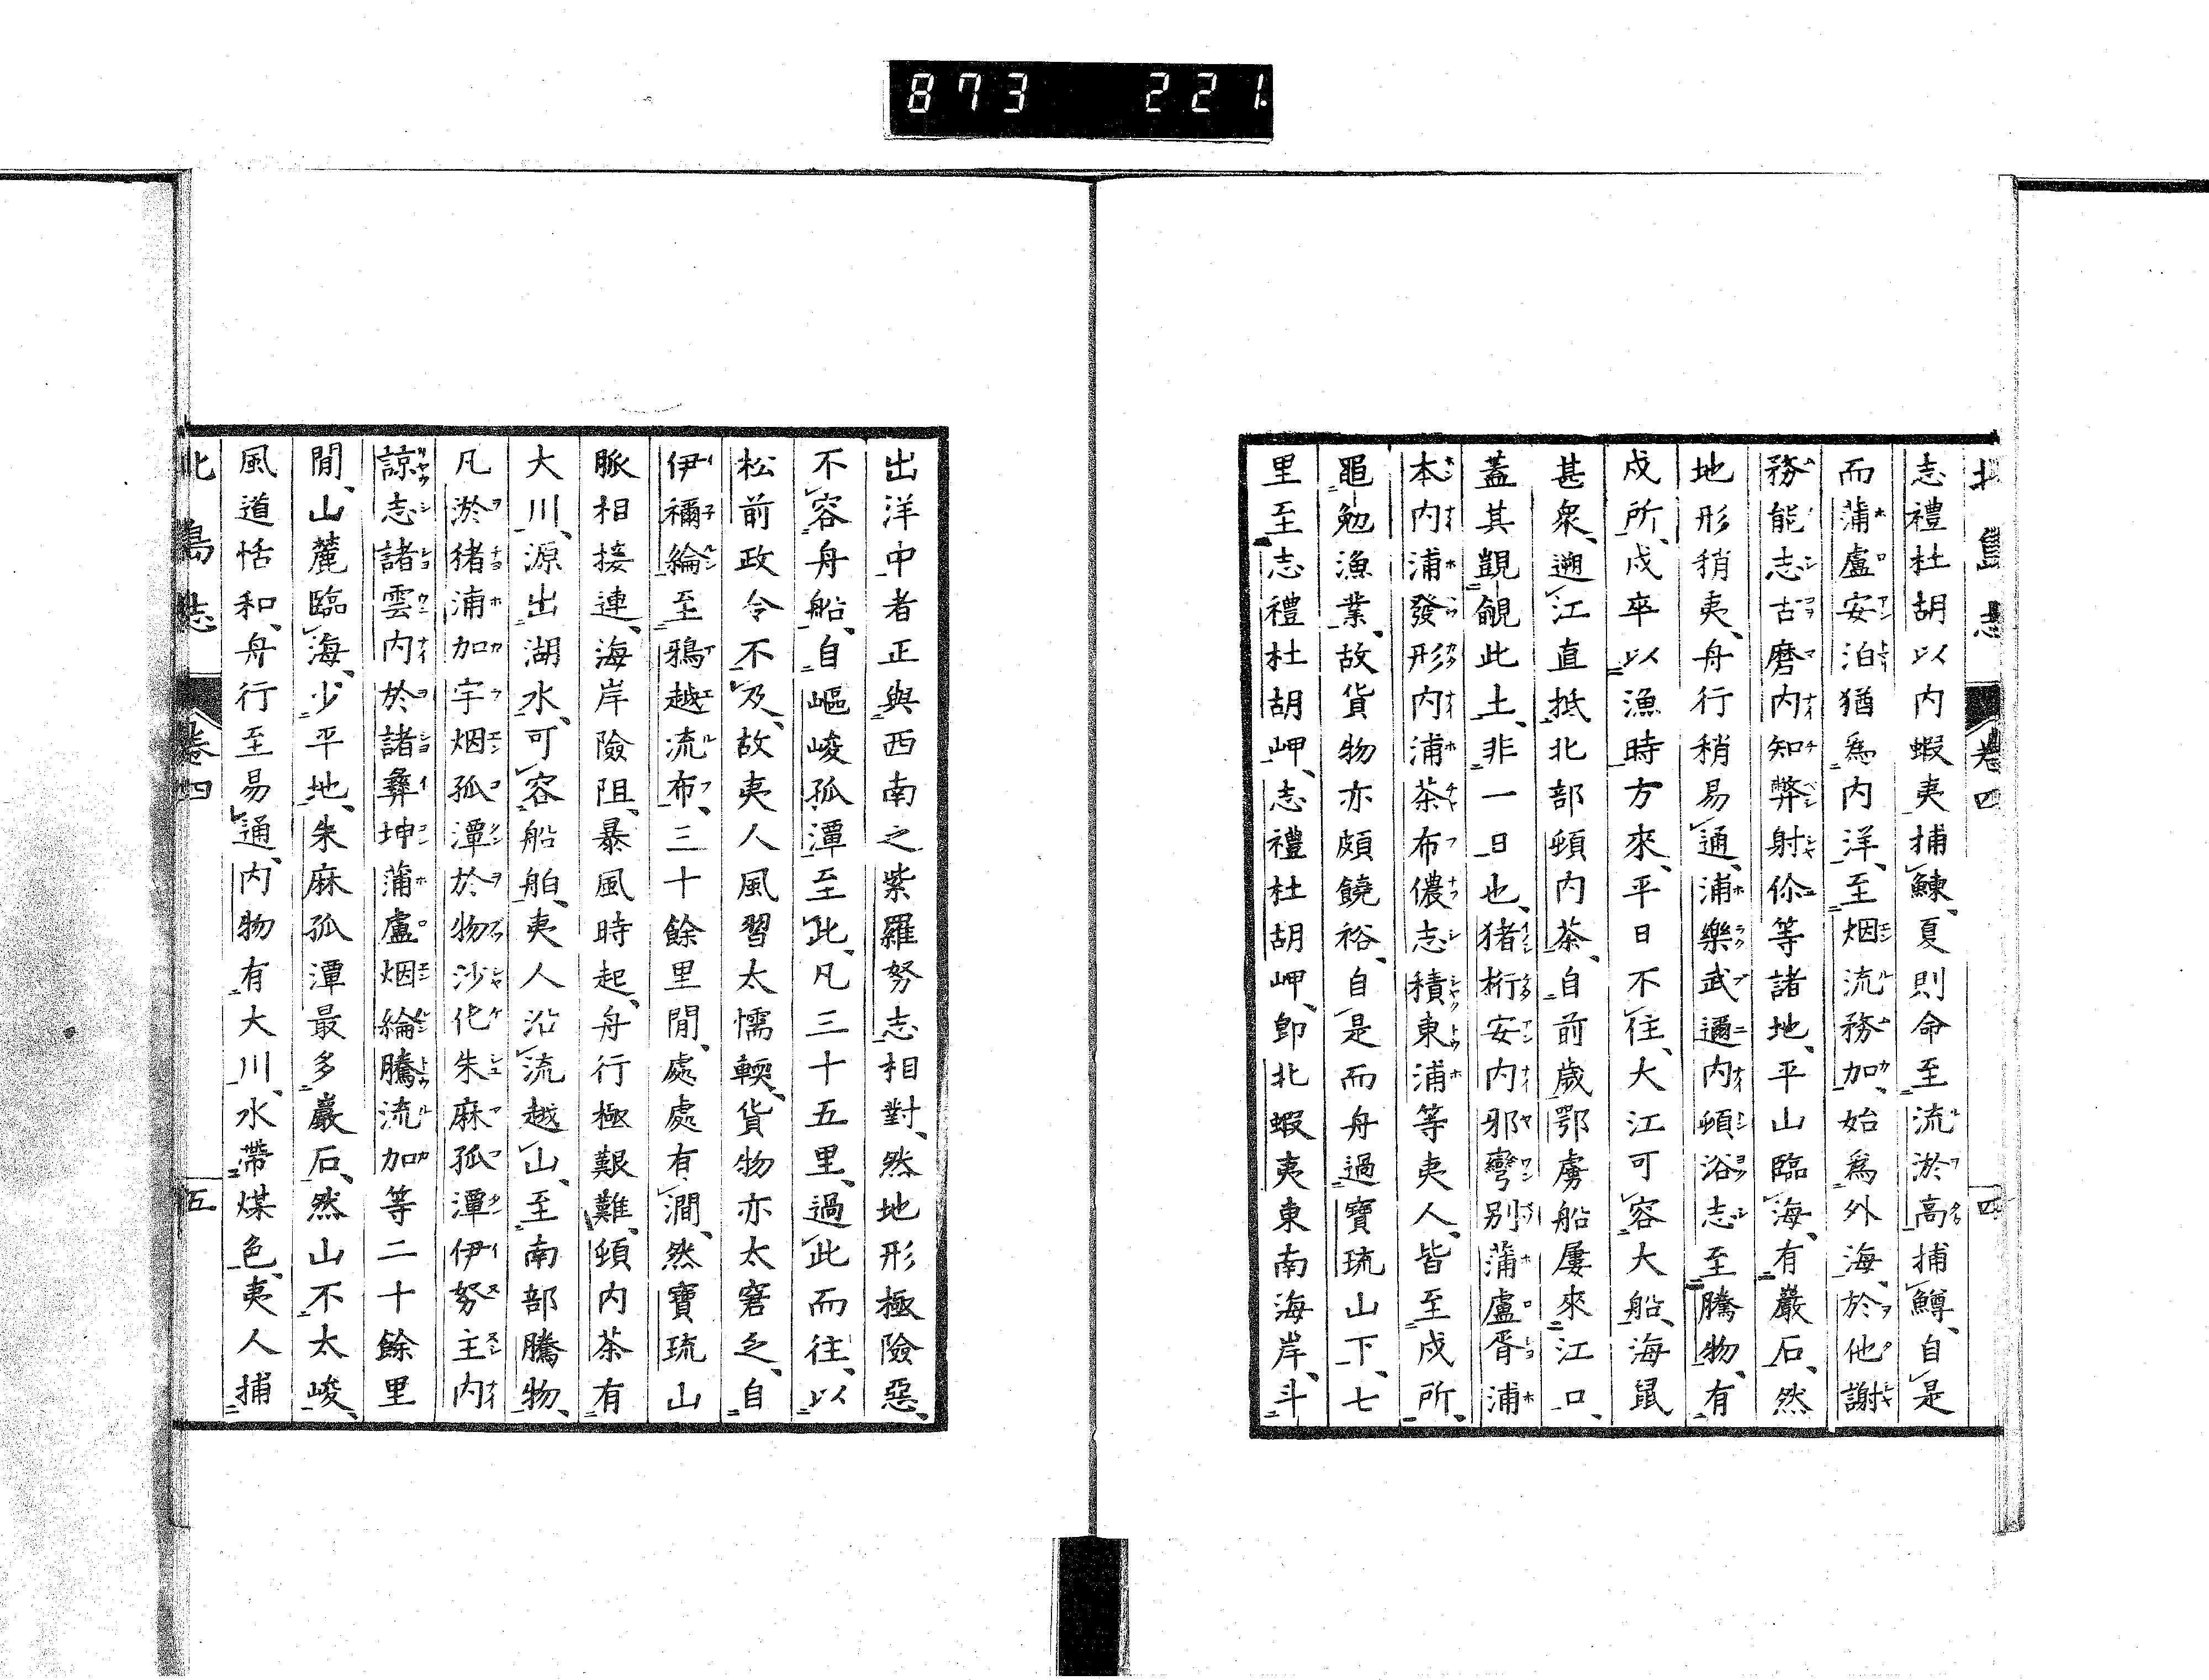 873 221
北島志 卷四 四
志禮杜胡以内蝦夷捕鰊、夏則命至流淤高捕鱒、自是
而蒲盧安泊猶爲内洋、至烟流務加、始爲外海、於他謝
務能志古磨内知弊射伱等諸地、平山臨海、有巖石、然
地形稍夷、舟行稍易通、浦樂武邇内頓浴志至騰物、有
戍所、戍卒以漁時方來、平日不往、大江可容大船、海鼠
甚衆、遡江直抵北部頓内茶、自前歲鄂虜船屢來江口、
蓋其覬覦此土、非一日也、猪桁安内邪彎别蒲盧胥浦
本内浦發形内浦茶布儂志積東浦等夷人、皆至戍所、
黽勉漁業、故貨物亦頗饒裕、自是而舟過寶琉山下、七
里至志禮杜胡岬、志禮杜胡岬、卽北蝦夷東南海岸、斗
出洋中者正與西南之紫羅努志相對、然地形極險惡、
不容舟船、自嶇峻孤潭至此、凡三十五里、過此而往、以
松前政令不及、故夷人風習太懦輭、貨物亦太窘乏、自
伊禰綸至鴉越流布、三十餘里閒、處處有澗、然寶琉山
脈相接連、海岸險阻、暴風時起、舟行極艱難、頓内茶有
大川、源出湖水、可容船舶、夷人沿流越山、至南部騰物、
凡淤猪浦加宇烟孤潭於物沙化朱麻孤潭伊努主内
諒志諸雲内於諸彝坤蒲盧烟綸騰流加等二十餘里
閒、山麓臨海、少平地、朱麻孤潭最多巖石、然山不太峻、
風道恬和、舟行至易通、内物有大川、水帶煤色、夷人捕
北島志 卷四 五